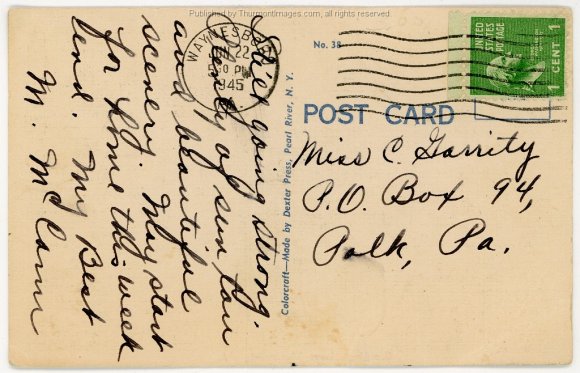 Published by Thurmontimages.com, all rights reserved
Still going strong.
Plenty of sun tan
and beautiful
scenery. May start
for home this week
end. My Best
M. McCann
WAYNESBORO
22
PM
1945
No. 38
UNITED STATES POSTAGE
1 CENT 1
POST CARD
Miss C. Garrity
P.O. Box 94,
Polk, Pa.
Colorcraft—Made by Dexter Press, Pearl River, N. Y.